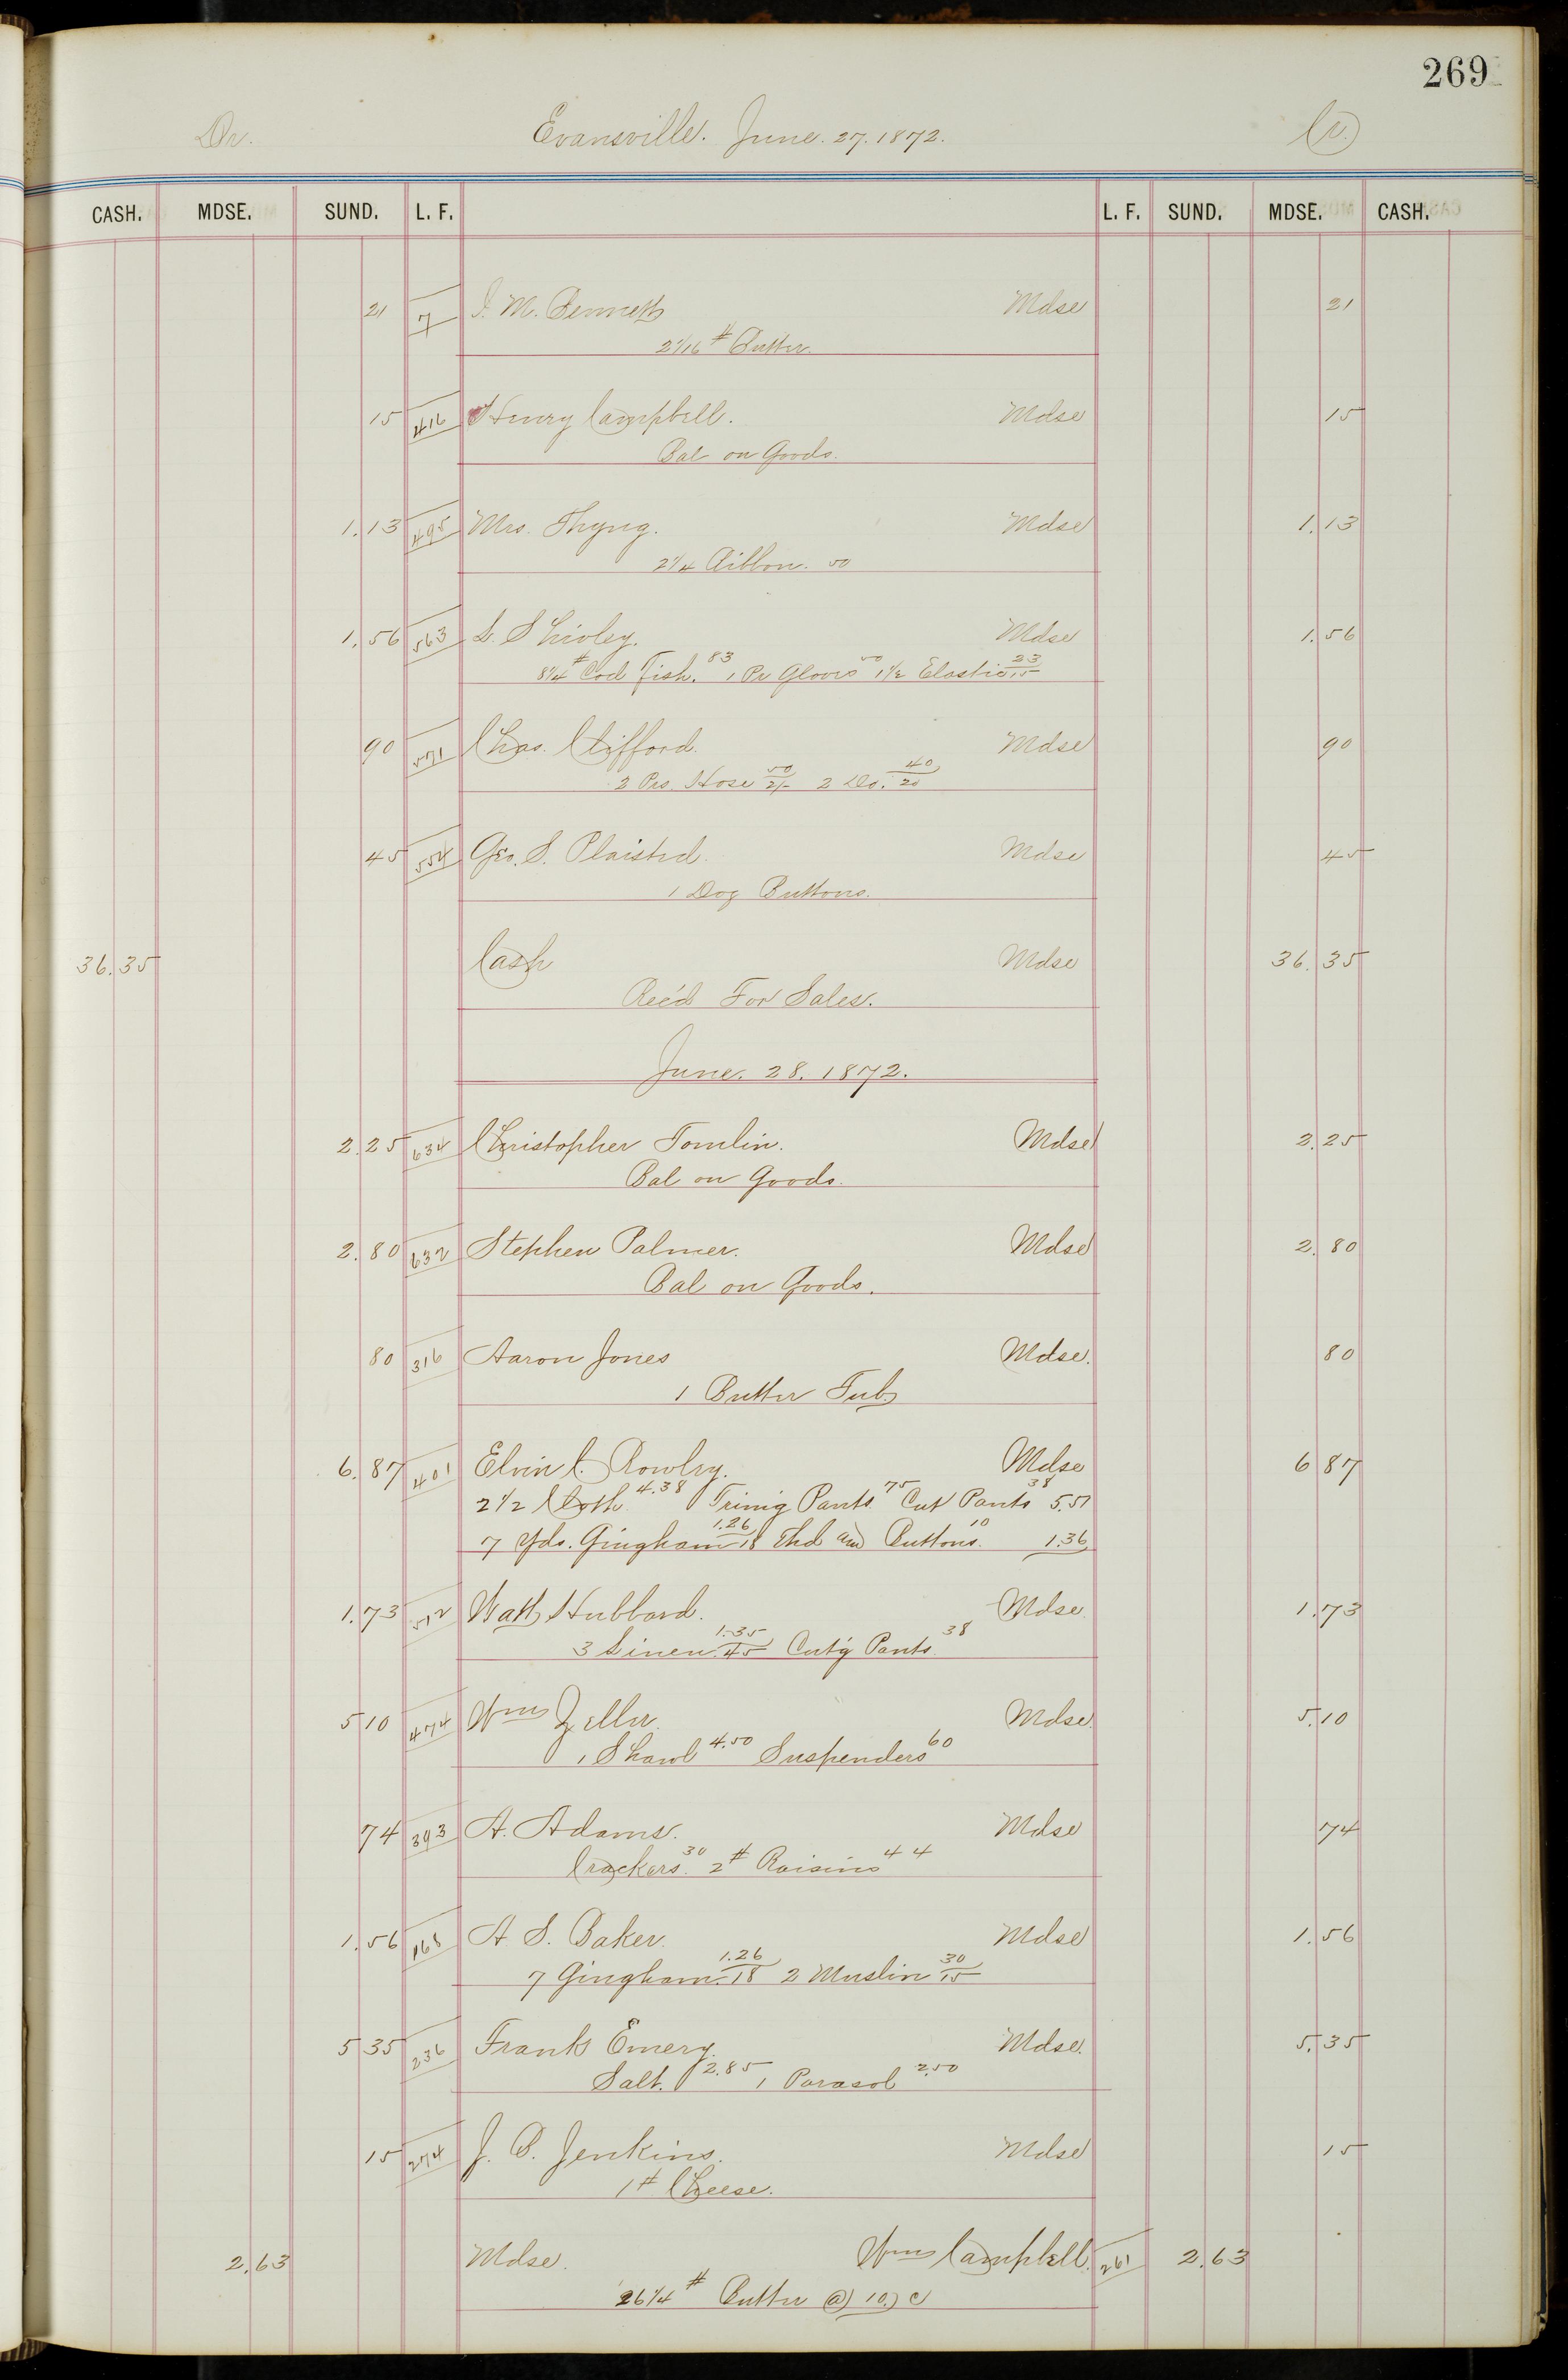 269
Dr. Evansville. June. 27. 1872. Cr.
CASH. MDSE. SUND. L. F. L. F. SUND. MDSE. CASH.
21 7 I. M. Bennett Mdse 21
2 1/16 # Butter.
15 416 Henry Campbell. Mdse 15
Bal on Goods.
1.13 495 Mrs. Thyng. Mdse 1.13
2 1/4 Ribbon. 50
1.56 563 L. Shivley. Mdse 1.56
8 1/4 # Cod Fish. 83 1 Pr Gloves 50 1 1/2 Elastic 23/15
90 571 Chas. Clifford. Mdse 90
2 Prs. Hose 50/2/- 2 Do. 40/20
45 554 Geo. S. Plaisted. Mdse 45
1 Doz Buttons.
36.35 Cash Mdse 36.35
Rec'd For Sales.
June. 28. 1872.
2.25 634 Christopher Tomlin. Mdse 2.25
Bal on Goods.
2.80 632 Stephen Palmer. Mdse 2.80
Bal on Goods.
80 316 Aaron Jones Mdse. 80
1 Butter Tub
6.87 401 Elvin C. Rowley. Mdse 6 87
2 1/2 Cloth. 4.38 Trimg Pants. 75 Cut Pants 38 5.51
7 Yds. Gingham 1.26/18 Thd and Buttons. 10 1.36
1.73 512 Watt Hubbard. Mdse 1.73
3 Linen. 1.35/45 Cut'g Pants 38
5 10 474 Wm Zeller. Mdse. 5.10
1 Shawl 4.50 Suspenders 60
74 393 A. Adams. Mdse 74
Crackers. 30 2 # Raisins 44
1.56 168 A. S. Baker. Mdse 1.56
7 Gingham. 1.26/18 2 Muslin 30/15
5 35 236 Frank Emery. Mdse. 5.35
Salt. 2.85 1 Parasol 2.50
15 274 J. B. Jenkins. Mdse 15
1 # Cheese.
2.63 Mdse. Wm Campbell. 261 2.63
26 1/4 # Butter @ 10 c